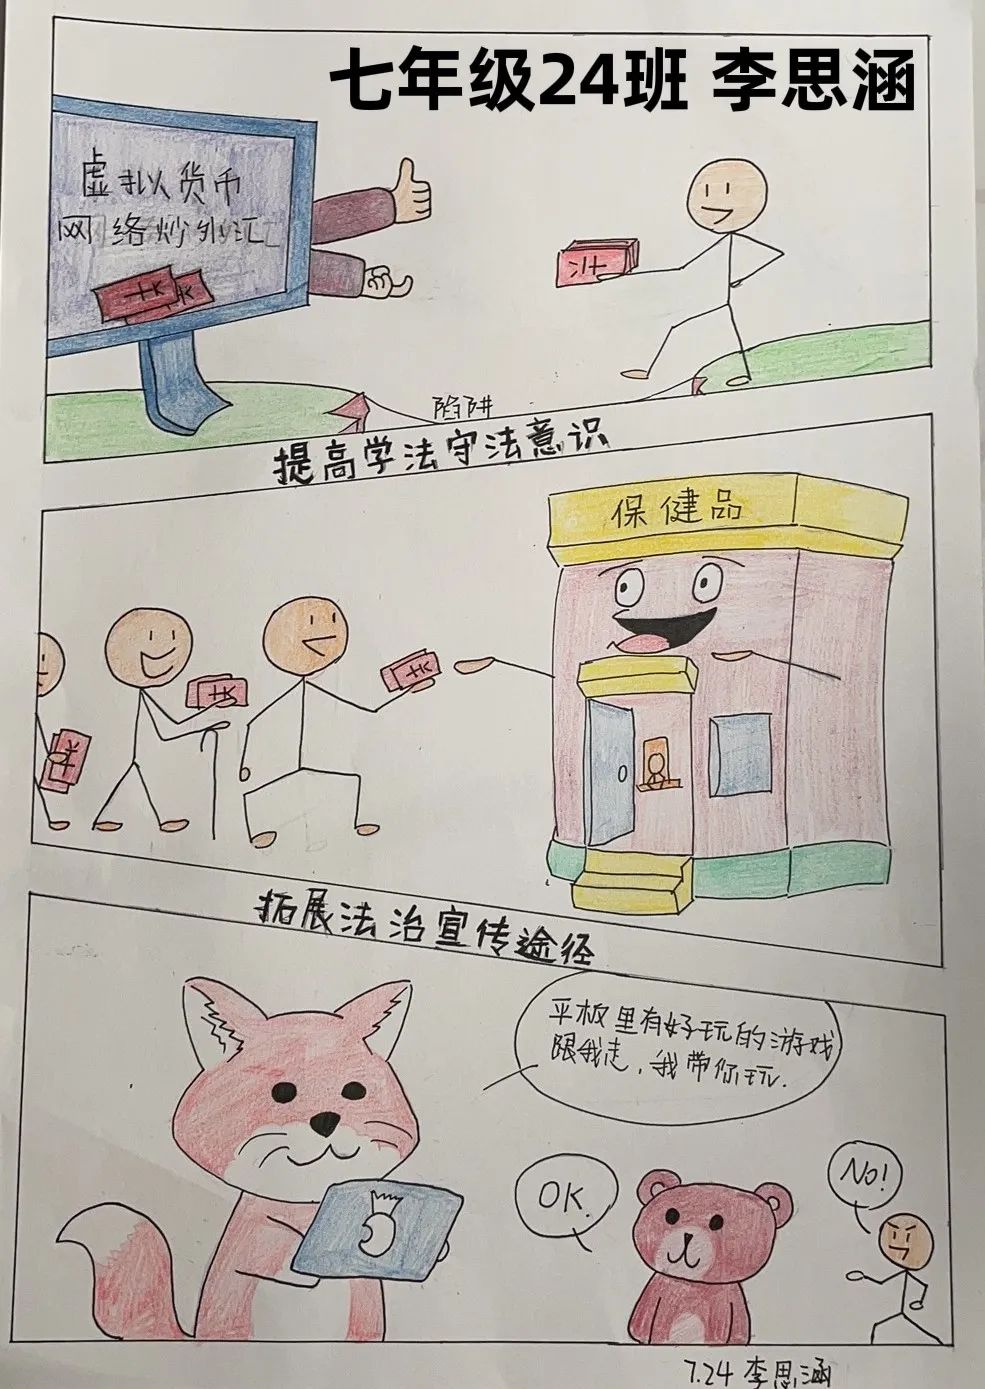 七年级24班 李思涵
虚拟货币
网络炒外汇
陷阱
提高学法守法意识
保健品
拓展法治宣传途径
平板里有好玩的游戏
跟我走，我带你玩.
OK.
No!
7.24 李思涵